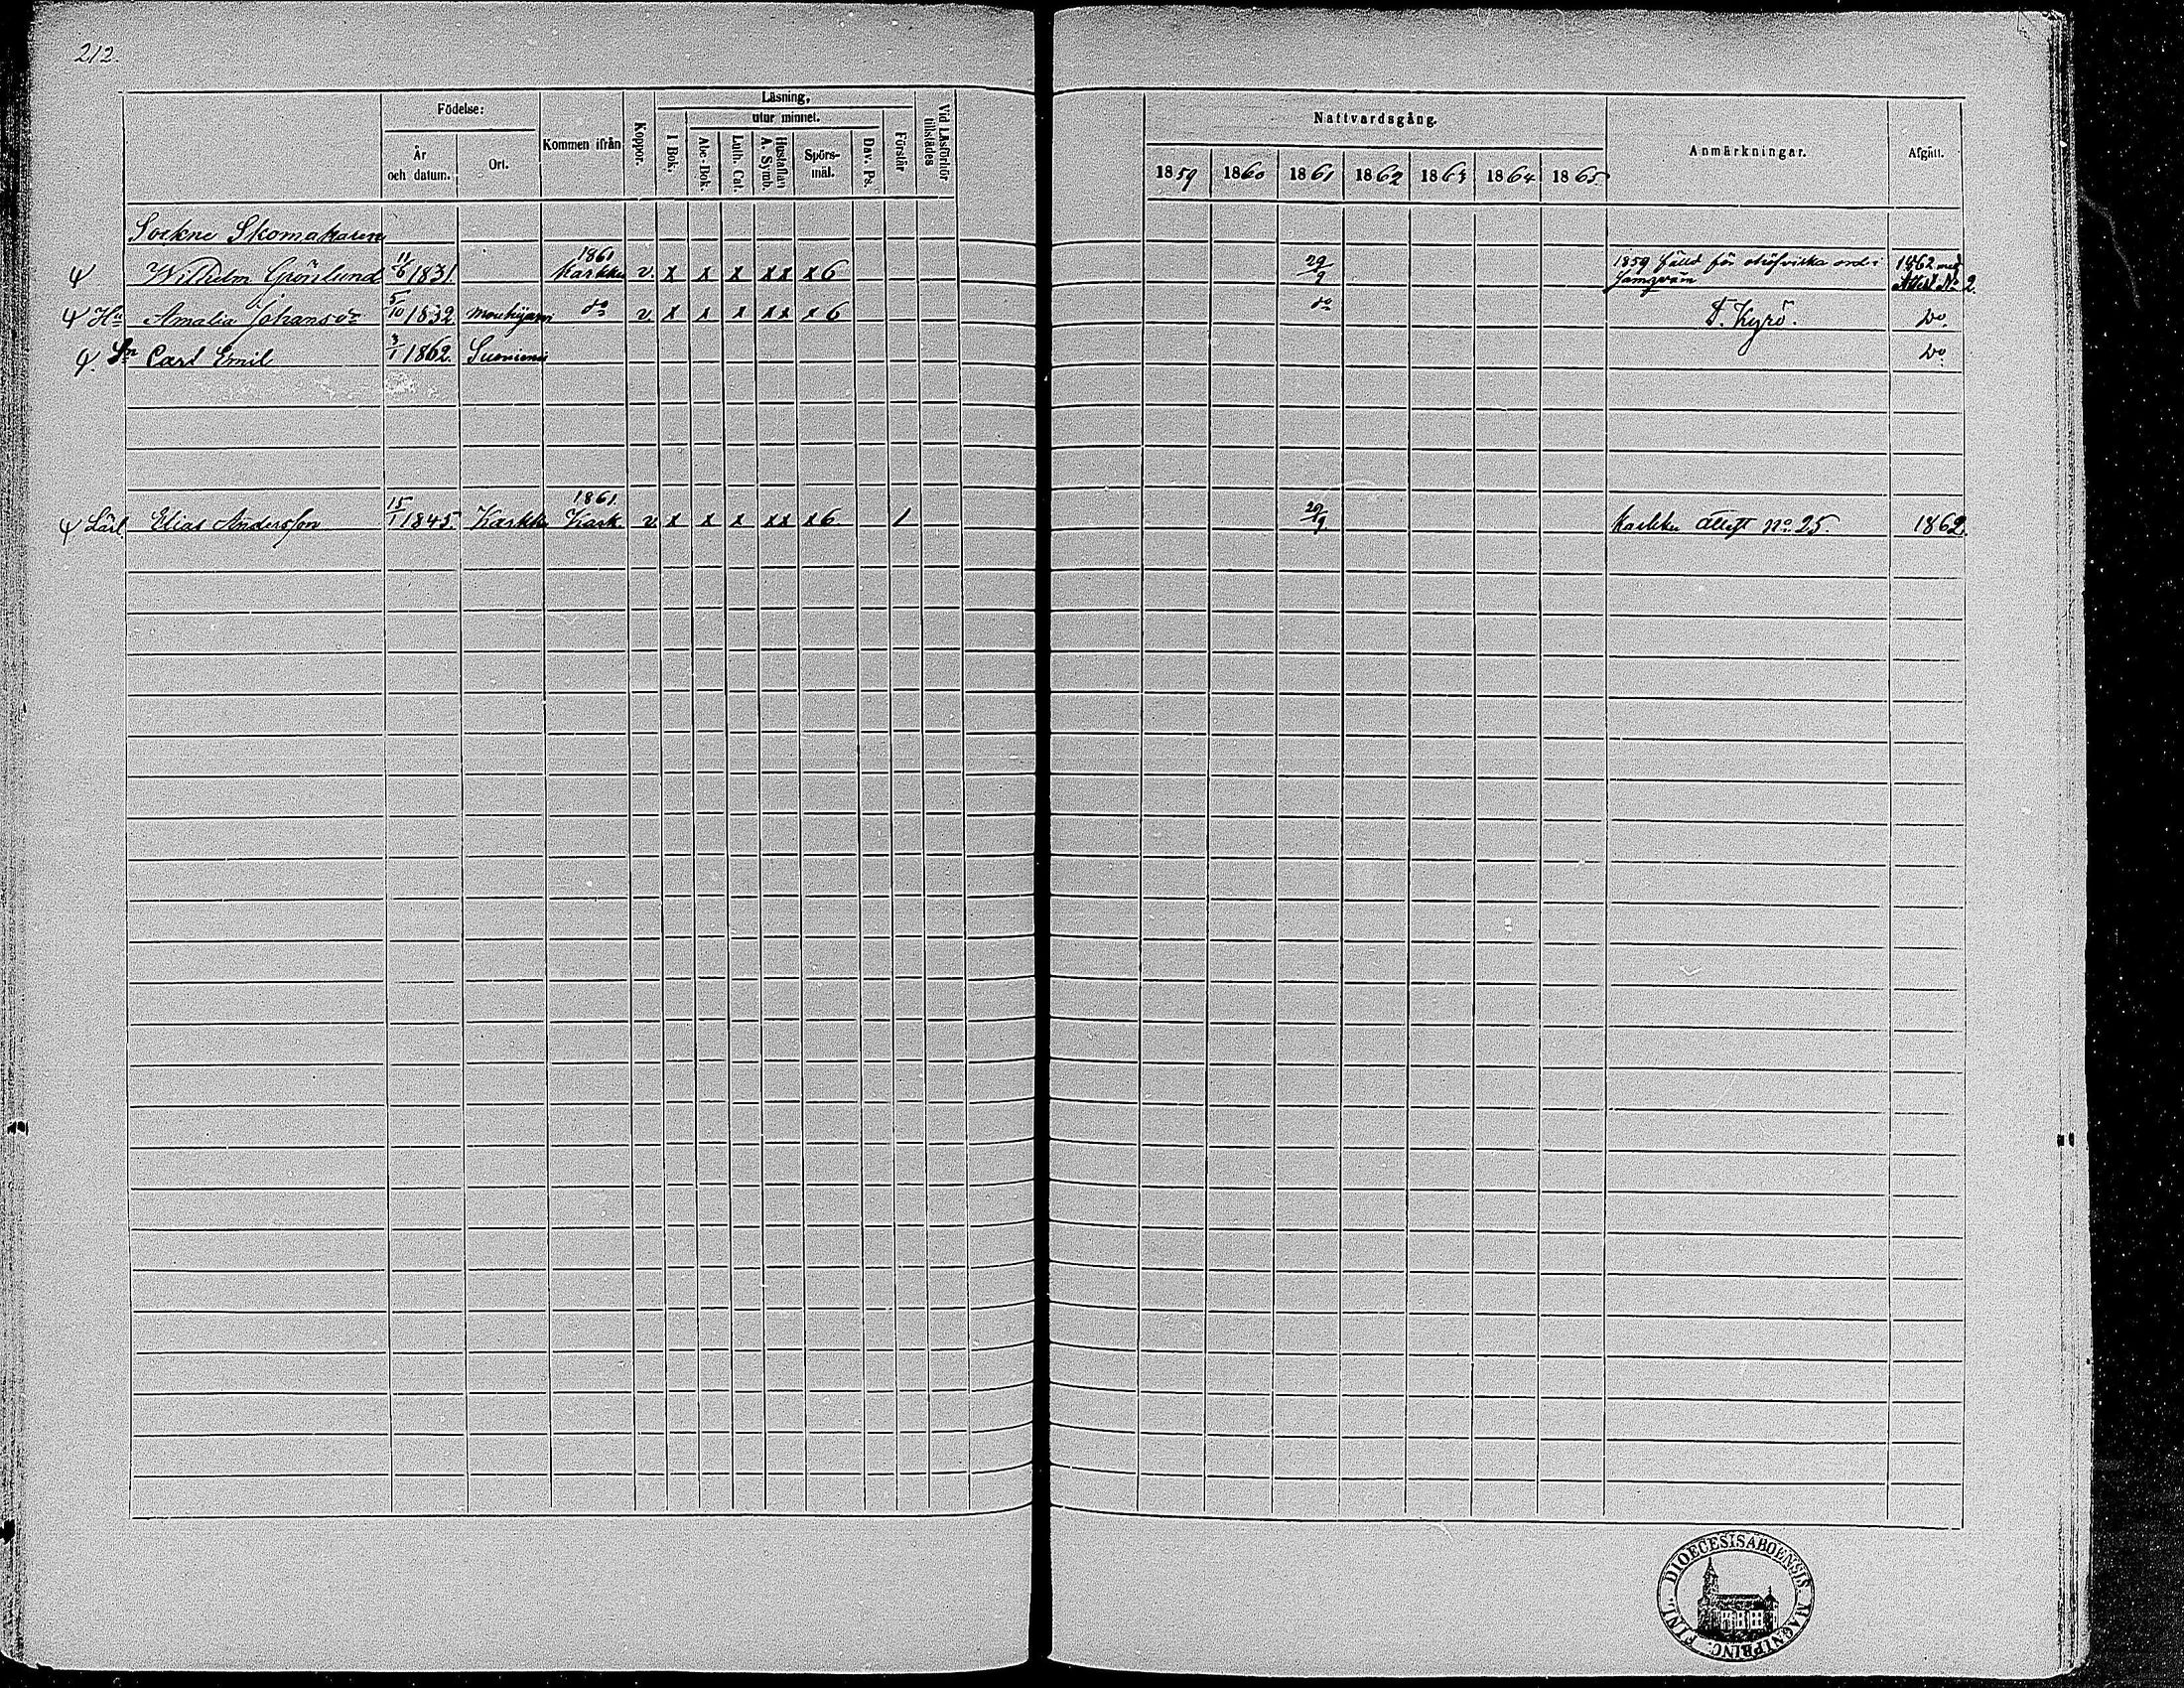 212.
Födelse:
År och datum.
Ort.
Kommen ifrån
Koppor.
Läsning,
I Bok.
utur minnet.
Abc-Bok.
Luth. Cat.
Hustaflan A. Symb.
Spörs-mål.
Dav. Ps.
Förstår
Vid Läsförhör tillstädes
Nattvardsgång.
1859 1860 1861 1862 1863 1864 1865
Anmärkningar.
Afgått.
Sockne Skomakaren
Wilhelm Grönlund 11/6 1831. 1861 Karkku v. x x x xx x6 29/9 1859 fälld för ord i 1862 med
Attest No 2.
Hu Amalia Johansdr 5/10 1832 Mouhijärvi do v. x x x xx x6 do T. Kyrö. Do
Sn Carl Emil 3/1 1862. Suoniemi Do
Lärl. Elias Andersson 15/1 1845. Karkku 1861. Kark. v. x x x xx x6 1 29/9 Karkku attest No 25. 1862.
DIOECESIS ABOENSIS MAGNI PRINC. FINL.